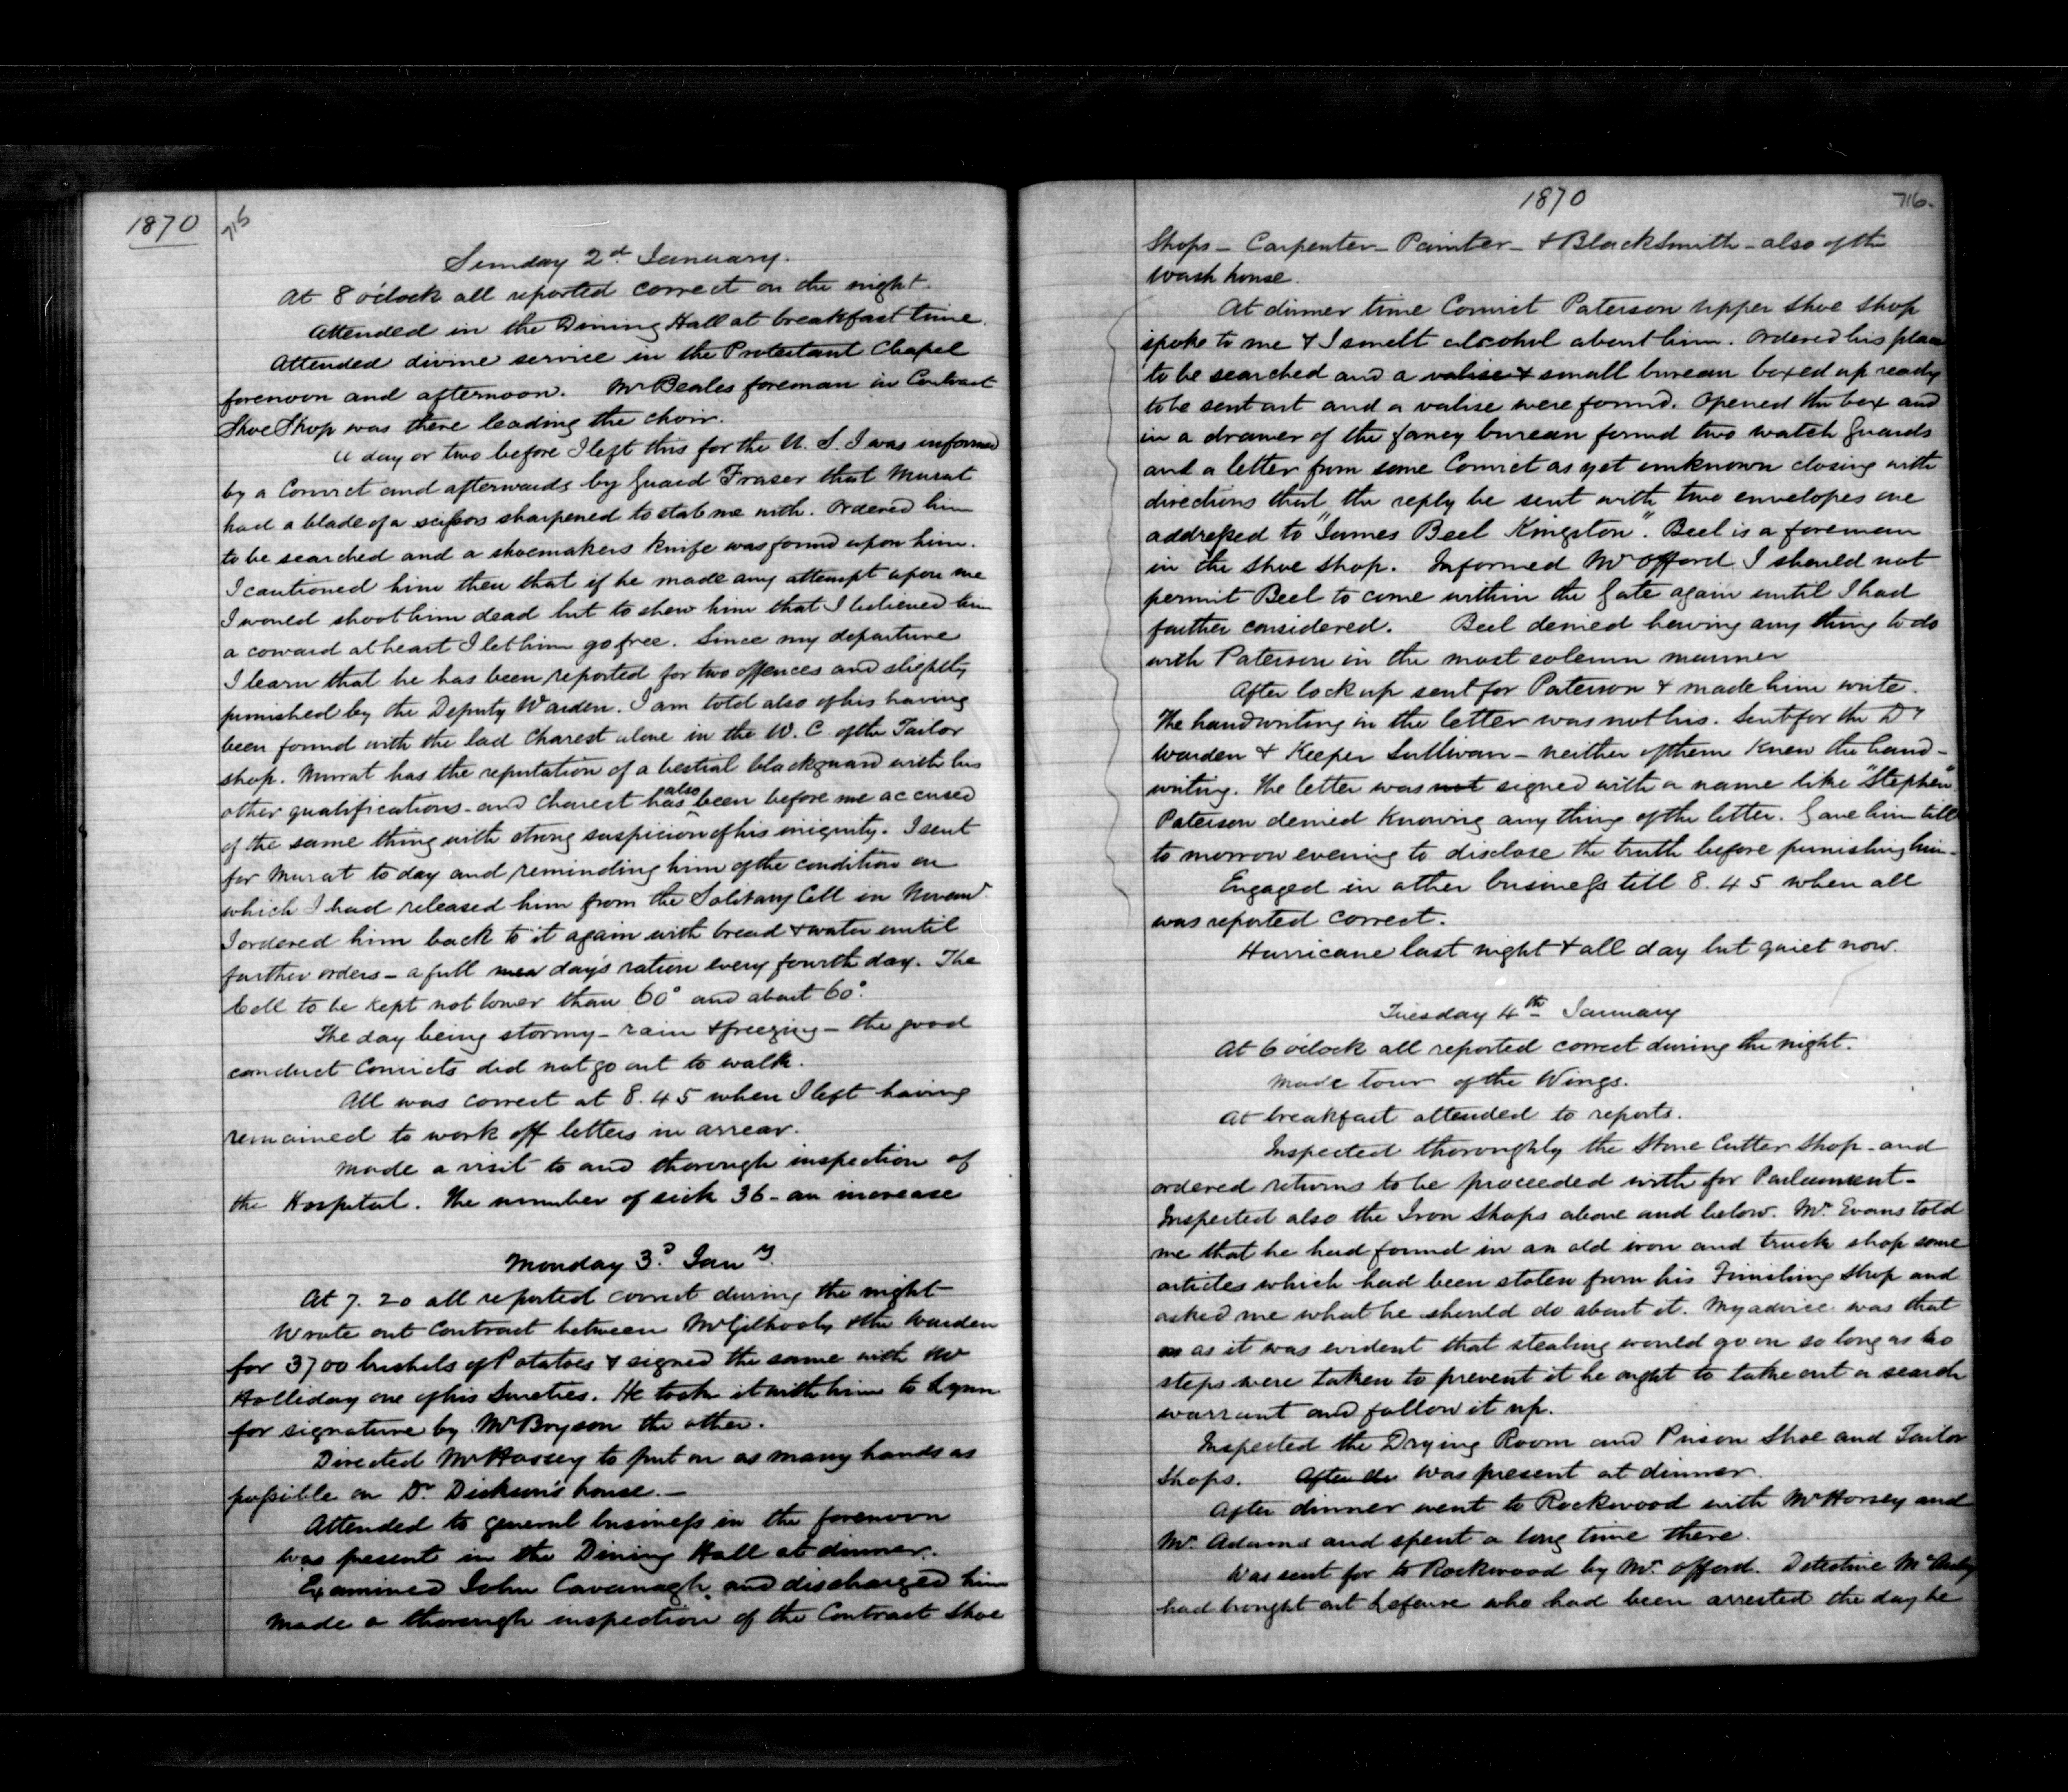 1870
715
Sunday 2d January.
At 8 o'clock all reported correct on the night.
Attended in the Dining Hall at breakfast time.
Attended divine service in the Protestant Chapel
forenoon and afternoon. Mr Beales foreman in Contract
Shoe Shop was there leading the choir.
A day or two before I left this for the U. S. I was informed
by a Convict and afterwards by Guard Fraser that Murat
had a blade of a scissors sharpened to stab me with. Ordered him
to be searched and a shoemakers knife was found upon him.
I cautioned him then that if he made any attempt upon me
I would shoot him dead but to shew him that I believed him
a coward at heart I let him go free. Since my departure
I learn that he has been reported for two offences and slightly
punished by the Deputy Warden. I am told also of his having
been found with the lad Charest alone in the W. C. of the Tailor
shop. Murat has the reputation of a bestial blackguard with his
other qualifications - and Charest has also been before me accused
of the same thing with strong suspicion of his iniquity. I sent
for Murat to day and reminding him of the condition on
which I had released him from the Solitary Cell in Novemr
I ordered him back to it again with bread & water until
further orders - a full mea day's ration every fourth day. The
Cell to be kept not lower than 60° and about 60°.
The day being stormy - rain & freezing - the good
conduct Convicts did not go out to walk.
All was correct at 8.45 when I left having
remained to work off letters in arrear.
Made a visit to and thorough inspection of
the Hospital. The number of sick 36 - an increase
Monday 3d Jany.
At 7.20 all reported correct during the night
Wrote out Contract between McGilhooly & the Warden
for 3700 bushels of Potatoes & signed the same with Mr
Holliday one of his Sureties. He took it with him to Lynn
for signature by Mr Bryson the other.
Directed Mr Horsey to put on as many hands as
possible on Dr Dickson's house. -
Attended to general business in the forenoon
Was present in the Dining Hall at dinner.
Examined John Cavanagh and discharged him
Made a thorough inspection of the Contract Shoe
1870
716.
Shops - Carpenter - Painter - & Blacksmith - also of the
Wash house.
At dinner time Convict Paterson upper Shoe Shop
spoke to me & I smelt alcohol about him. Ordered his place
to be searched and a valise & small bureau boxed up ready
to be sent out and a valise were found. Opened the box and
in a drawer of the fancy bureau found two watch guards
and a letter from some Convict as yet unknown closing with
directions that the reply be sent with two envelopes one
addressed to "James Beel Kingston". Beel is a foreman
in the Shoe Shop. Informed Mr Offord I should not
permit Beel to come within the Gate again until I had
further considered. Beel denied having any thing to do
with Paterson in the most solemn manner
After lock up sent for Paterson & made him write.
The handwriting in the letter was not his. Sent for the Dy
Warden & Keeper Sullivan - neither of them knew the hand-
writing. The letter was not signed with a name like "Stephen"
Paterson denied knowing any thing of the letter. Gave him till
to morrow evening to disclose the truth before punishing him -
Engaged in other business till 8.45 when all
was reported correct.
Hurricane last night & all day but quiet now.
Tuesday 4th January
At 6 o'clock all reported correct during the night.
Made tour of the Wings.
At breakfast attended to reports.
Inspected thoroughly the Stone Cutter Shop - and
ordered returns to be proceeded with for Parliament -
Inspected also the Iron Shops above and below. Mr. Evans told
me that he had found in an old iron and truck shop some
articles which had been stolen from his Finishing Shop and
asked me what he should do about it. My advice was that
as as it was evident that stealing would go on so long as no
steps were taken to prevent it he ought to take out a search
warrant and follow it up.
Inspected the Drying Room and Prison Shoe and Tailor
Shops. After di Was present at dinner.
After dinner went to Rockwood with Mr Horsey and
Mr. Adams and spent a long time there.
Was sent for to Rockwood by Mr. Offord. Detective
had brought out who had been arrested the day he